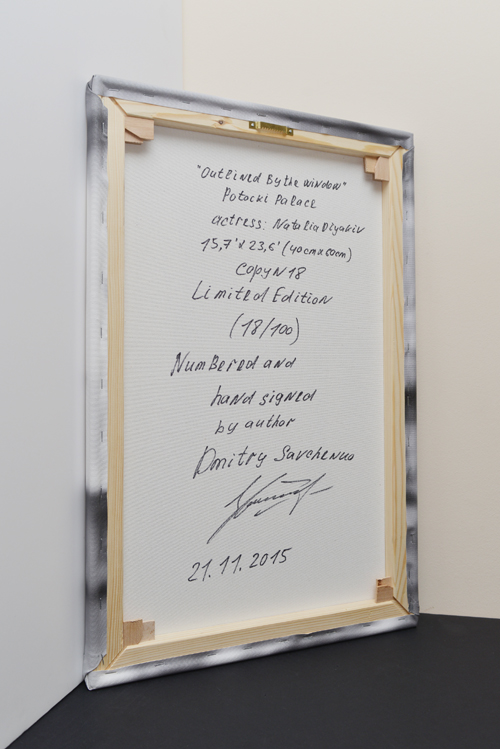 "Outlined By the window"
Potocki Palace
actress: Natalia Diyakiv
15,7'x 23,6' (40cmx60cm)
Copy N 18
Limited Edition
(18/100)
Numbered and
hand signed
by author
Dmitry Savchenko
21.11.2015